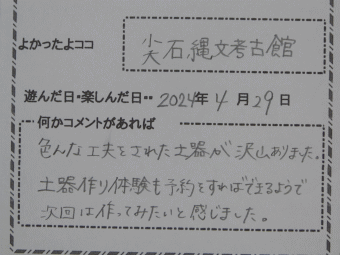 よかったよココ 尖石縄文考古館
遊んだ日・楽しんだ日・・ 2024年 4 月 29 日
何かコメントがあれば
色んな工夫をされた土器が沢山ありました。
土器作り体験も予約をすればできるようで
次回は作ってみたいと感じました。